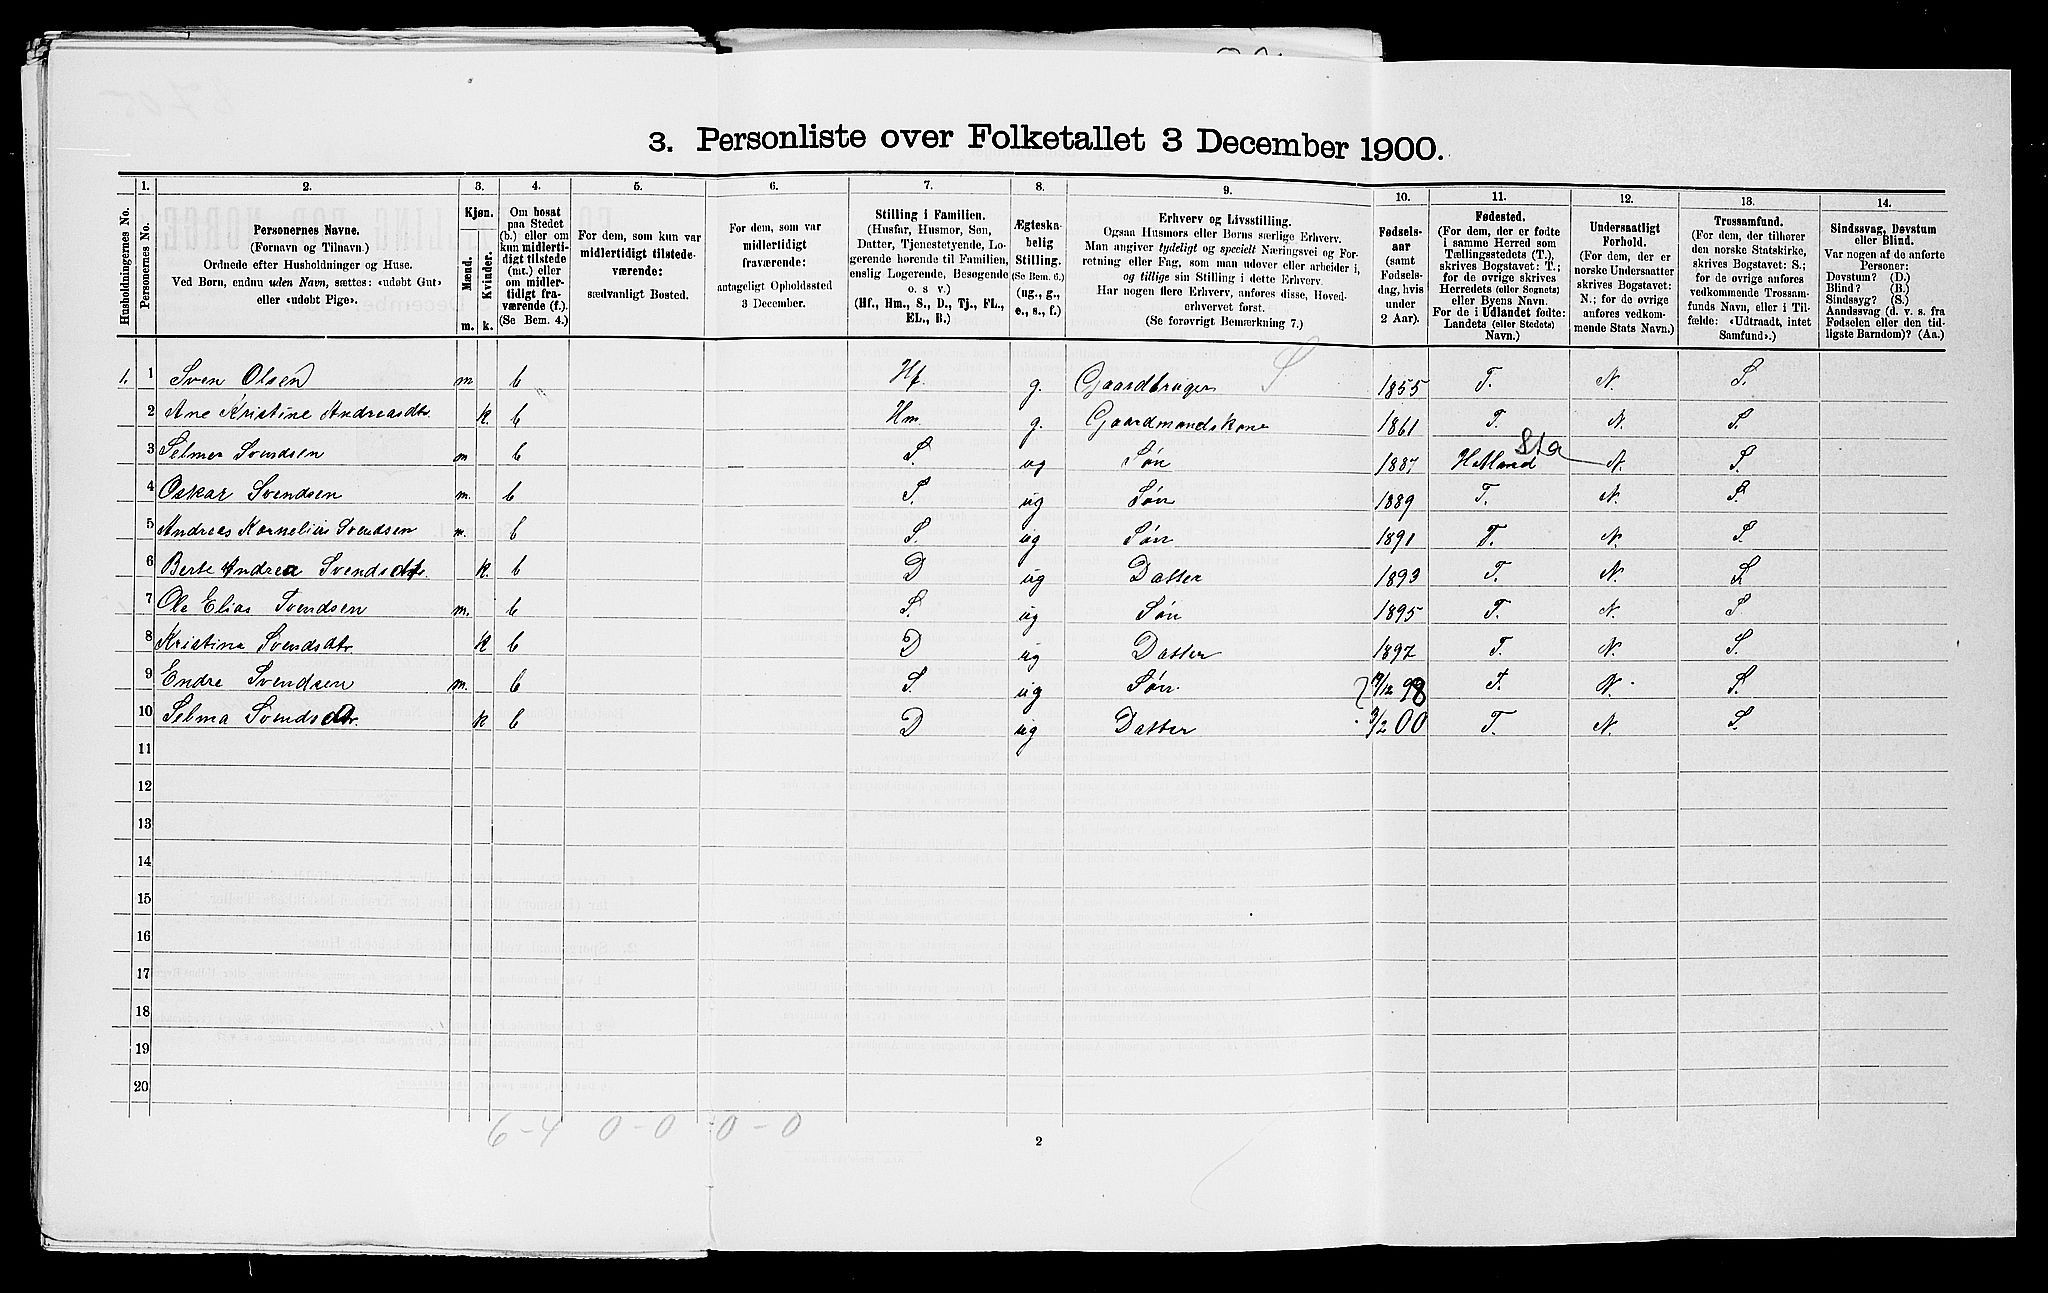 3. Personliste over Folketallet 3 December 1900.
Husholdningernes No.
1. Personernes No.
2. Personernes Navne. (Fornavn og Tilnavn.) Ordnede efter Husholdninger og Huse. Ved Børn, endnu uden Navn, sættes: «udøbt Gut» eller «udøbt Pige».
3. Kjøn. Mænd. m. Kvinder. k.
4. Om bosat paa Stedet (b.) eller om kun midlertidigt tilstede (mt.) eller om midlertidigt fraværende (f.). (Se Bem. 4.)
5. For dem, som kun var midlertidigt tilstedeværende: sædvanligt Bosted.
6. For dem, som var midlertidigt fraværende: antageligt Opholdssted 3 December.
7. Stilling i Familien. (Husfar, Husmor, Søn, Datter, Tjenestetyende, Logerende hørende til Familien, enslig Logerende, Besøgende o. s v.) (Hf., Hm., S., D., Tj., FL., EL., B.)
8. Ægteskabelig Stilling. (Se Bem. 6.) (ug., g., e., s., f.)
9. Erhverv og Livsstilling. Ogsaa Husmors eller Børns særlige Erhverv. Man angiver tydeligt og specielt Næringsvei og Forretning eller Fag, som man udøver eller arbeider i, og tillige sin Stilling i dette Erhverv. Har nogen flere Erhverv, anføres disse, Hovederhvervet først. (Se forøvrigt Bemærkning 7.)
10. Fødselsaar (samt Fødselsdag, hvis under 2 Aar).
11. Fødested. (For dem, der er fødte i samme Herred som Tællingsstedets (T.), skrives Bogstavet: T.; for de øvrige skrives Herredets (eller Sognets) eller Byens Navn. For de i Udlandet fødte: Landets (eller Stedets) Navn.)
12. Undersaatligt Forhold. (For dem, der er norske Undersaatter skrives Bogstavet: N.; for de øvrige anføres vedkommende Stats Navn.)
13. Trossamfund. (For dem, der tilhører den norske Statskirke, skrives Bogstavet: S.; for de øvrige anføres vedkommende Trossamfunds Navn, eller i Tilfælde: «Udtraadt, intet Samfund».)
14. Sindssvag, Døvstum eller Blind. Var nogen af de anførte Personer: Døvstum? (D.) Blind? (B.) Sindssyg? (S.) Aandssvag (d. v. s. fra Fødselen eller den tidligste Barndom)? (Aa.)
1. 1 Sven Olsen m b Hf. g. Gaardbruger S 1855 T. N. S.
2 Ane Kristine Andreasdtr. k. b Hm. g. Gaardmandskone 1861 T. N. S
3 Selmer Svendsen m b S. ug Søn 1887 Hetland Sta N. S.
4 Oskar Svendsen m. b S. ug Søn 1889 T. N. S.
5 Andreas Kornelius Svendsen m. b S. ug Søn 1891 T. N. S.
6 Berte Andrea Svendsdtr. k. b D ug Datter 1893 T. N. S
7 Ole Elias Svendsen m. b S. ug Søn 1895 T. N. S
8 Kristina Svendsdtr. k b D ug Datter 1897 T. N. S.
9 Endre Svendsen m. b S. ug Søn. /12 98 T. N. S.
10 Selma Svendsdtr. k b D ug Datter 3/2 00 T. N. S.
11
12
13
14
15
16
17
18
19
20
6-4 0-0 0-0
2